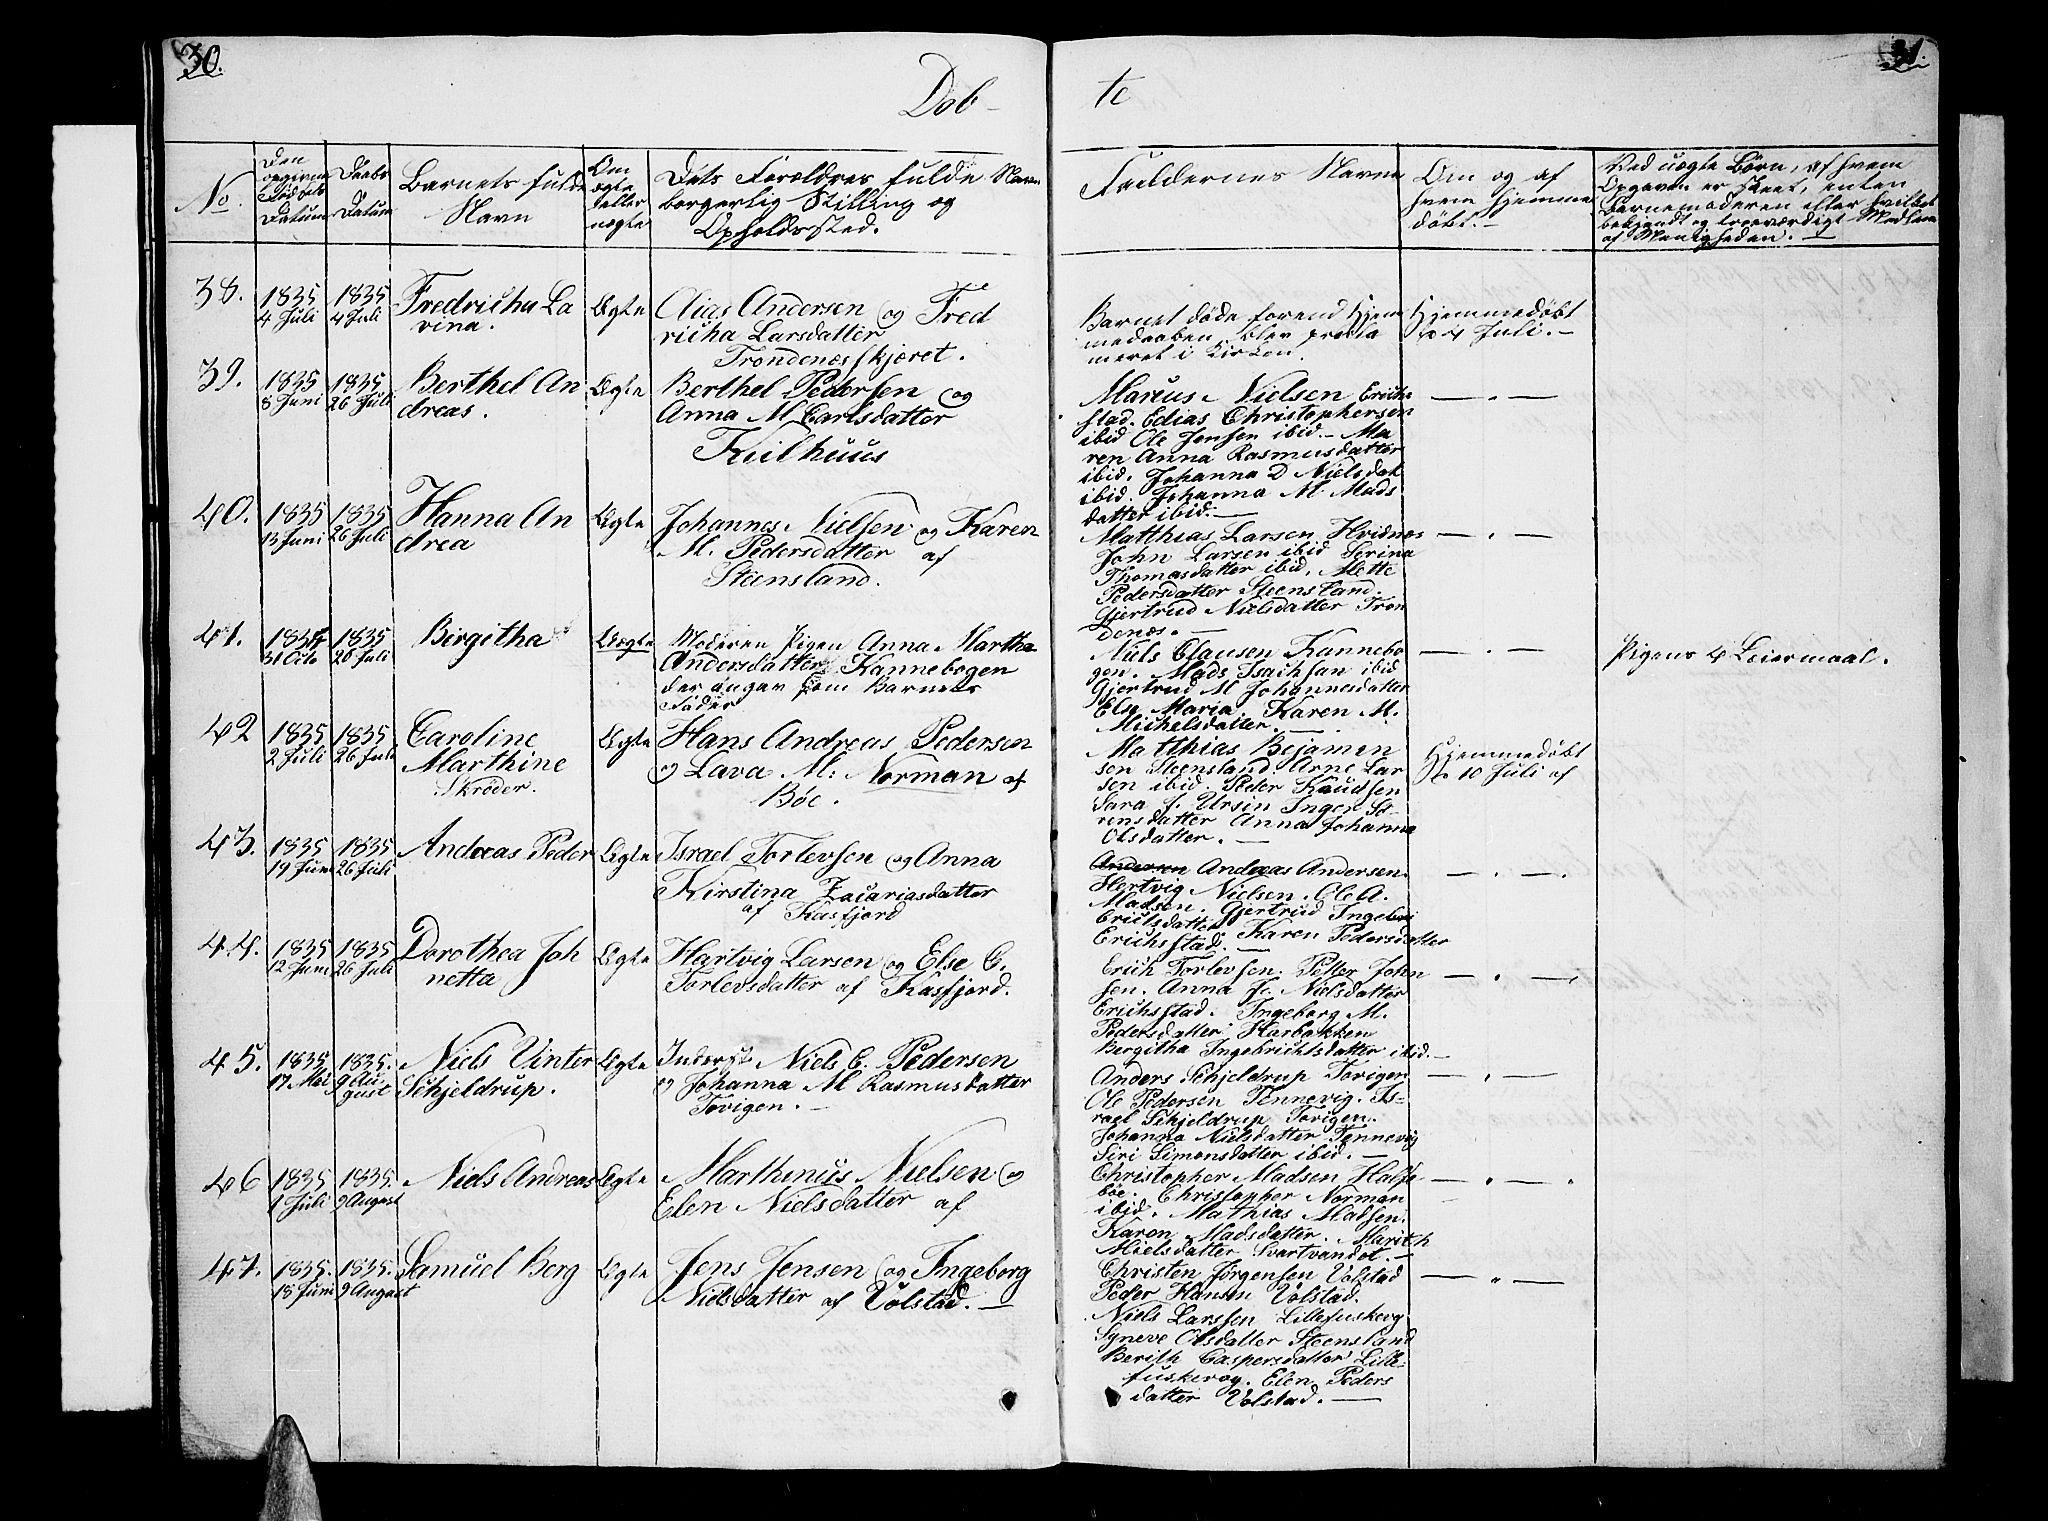 30.
31.
Døb-
te
No.
Den
opgivne
Fødsels
Datum
Daabs
Datum
Barnets fulde
Navn
Om
ægte
eller
uægte
Dets Forældres fulde Navn
borgerlig Stilling og
Opholdssted.
Faddernes Navne
Om og af
hvem hjemme
døbt.-
Ved uægte Børn, af hvem
Opgaven er skeet, enten
Barnemoderen eller hvilket
bekjendt og troeværdigt Medlem
af Menigheden.-
38.
1835
4 Juli
1835
4 Juli
Fredricha La
vina.
Ægte
Elias Andersen og Fred
richa Larsdatter
Trondenæsskjæret.
Barnet døde forend Hjem
medaaben blev procla
meret i Kirken.
Hjemmedøbt
4 Juli.-
39.
1835
8 Juni
1835
26 Juli
Berthel An
dreas.
Ægte
Berthel Pedersen og
Anna M Carlsdatter
Kiilhuus
Marcus Nielsen Erichs
stad. Edias Christophersen
ibid Ole Jensen ibid.- Ma
ren Anna Rasmusdatter
ibid. Johanna D Nielsdat
ibid. Johanna M. Mads
datter ibid.-
40.
1835
13 Juni
1835
26 Juli
Hanna An
drea
Ægte
Johannes Nielsen og Karen
M. Pedersdatter af
Steensland.
Matthias Larsen Hvidnæs
John Larsen ibid Serina
Thomasdatter ibid. Mette
Pedersdatter Steensland.
Gjertrud Nielsdatter Tron
denæs.-
41.
1834
31 Octo
1835
26 Juli
Birgitha
Uægte
Moderen Pigen Anna Martha
Andersdatter Kannebogen
der angav som Barnets
Fader
Niels Clausen Kannebo
gen. Mads Isachsen ibid
Gjertrud M Johannesdatter
Else Maria Karen M.
Michelsdatter.-
Pigens 4 Leiermaal.
42
1835
2 Juli
1835
26 Juli
Caroline
Marthine
Skrøder.
Ægte
Hans Andreas Pedersen
og Lava M: Norman af
Bøe.
Matthias Bejamen
sen Steensland. Arne Lar
sen ibid. Peder Knudsen
Sara J. Ursin Inger So
rensdatter Anna Johanna
Olsdatter.-
Hjemmedøbt
10 Juli af
43.
1835
19 Juni
1835
26 Juli
Andreas Peder
Ægte
Israel Torlevsen og Anna
Kirstina Zacariasdatter
af Kasfjord
Andersen Andreas Andersen.
Hertvig Nielsen. Ole A.
Madsen. Gjertrud Ingebri
Erichsdatter Karen Pedersdatter
Erichsstad.-
44.
1835
12 Juni
1835
26 Juli
Dorothea Joh
netta
Ægte
Hartvig Larsen og Else C.
Torlevsdatter af Kasfjord.
Erich Torlevsen. Petter John
sen. Anna J. Nielsdatter
Erichsstad. Ingeborg M.
Pedersdatter Harbakken
Bergitha Ingebrichtsdatter ibid.-
45.
1835
17. Mai
1835.
9 Au
gust
Niels Vinter
Schjeldrup.
Ægte
Inderst Niels C. Pedersen
og Johanna M Rasmusdatter
Tovigen.-
Anders Schjeldrup Tovigen
Ole Pedersen Tennevig. Is-
rael Schjeldrup Tovigen.
Johanna Nielsdatter Tennevig
Siri Simonsdatter ibid.-
46
1835
1 Juli
1835.
9 August
Niels Andreas
Ægte
Marthinus Nielsen og
Elen Nielsdatter af
Christopher Madsen Halse
bøe. Christopher Norman
ibid. Mathias Madsen.
Karen Madsdatter. Marith
Nielsdatter Svartvandet.-
47.
1835.
15 Juni
1835.
9 August
Samuel Berg
Ægte
Jens Jensen og Ingeborg
Nielsdatter af Volstad.-
Christen Jørgensen Volstad
Peder Hansen Volstad.
Niels Larssen Lillefuskevog
Syneve Olsdatter Steensland
Berith Caspersdatter Lille-
fuskevog. Elen Peders
datter Volstad.-